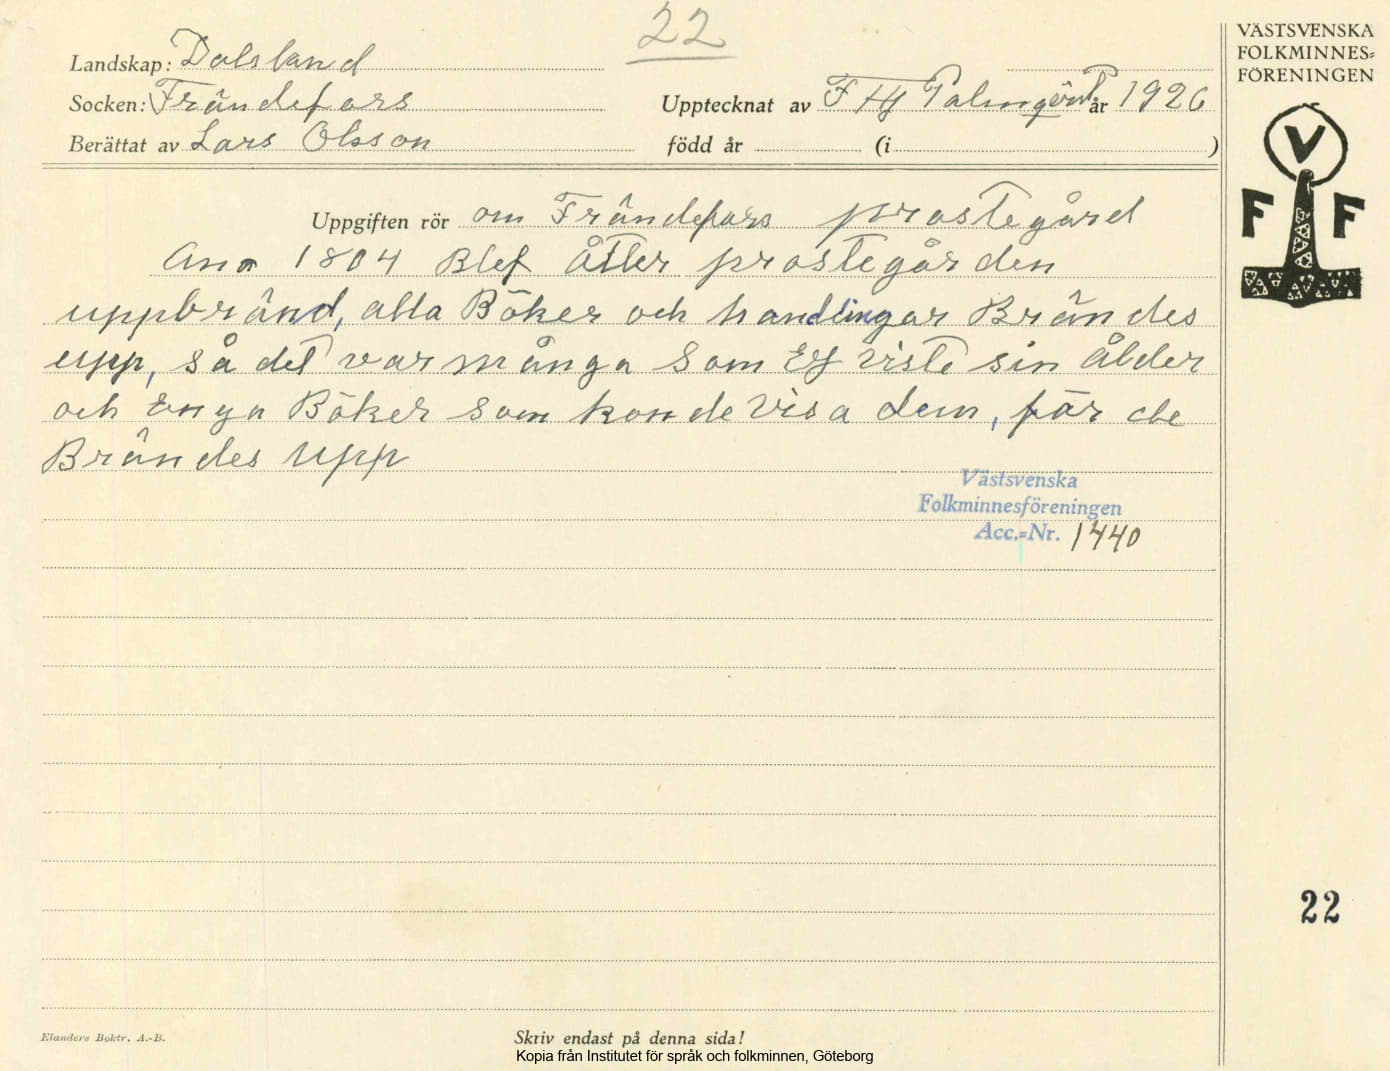 22
VÄSTSVENSKA
FOLKMINNES=
FÖRENINGEN
Landskap: Dalsland
Socken: Frändefors
Upptecknat av F Hj Palmqvist år 1926
Berättat av Lars Olsson
född år (i )
V
F F
Uppgiften rör om Frändefors prostegård
Ano 1804 Blef åtter prostegården
uppbränd, alla Böker och handlingar Brändes
upp, så det var många som Ej viste sin ålder
och Enga Böker som konde visa dem, får de
Brändes upp
Västsvenska
Folkminnesföreningen
Acc.=Nr. 1440
22
Elanders Boktr. A.-B.
Skriv endast på denna sida!
Kopia från Institutet för språk och folkminnen, Göteborg